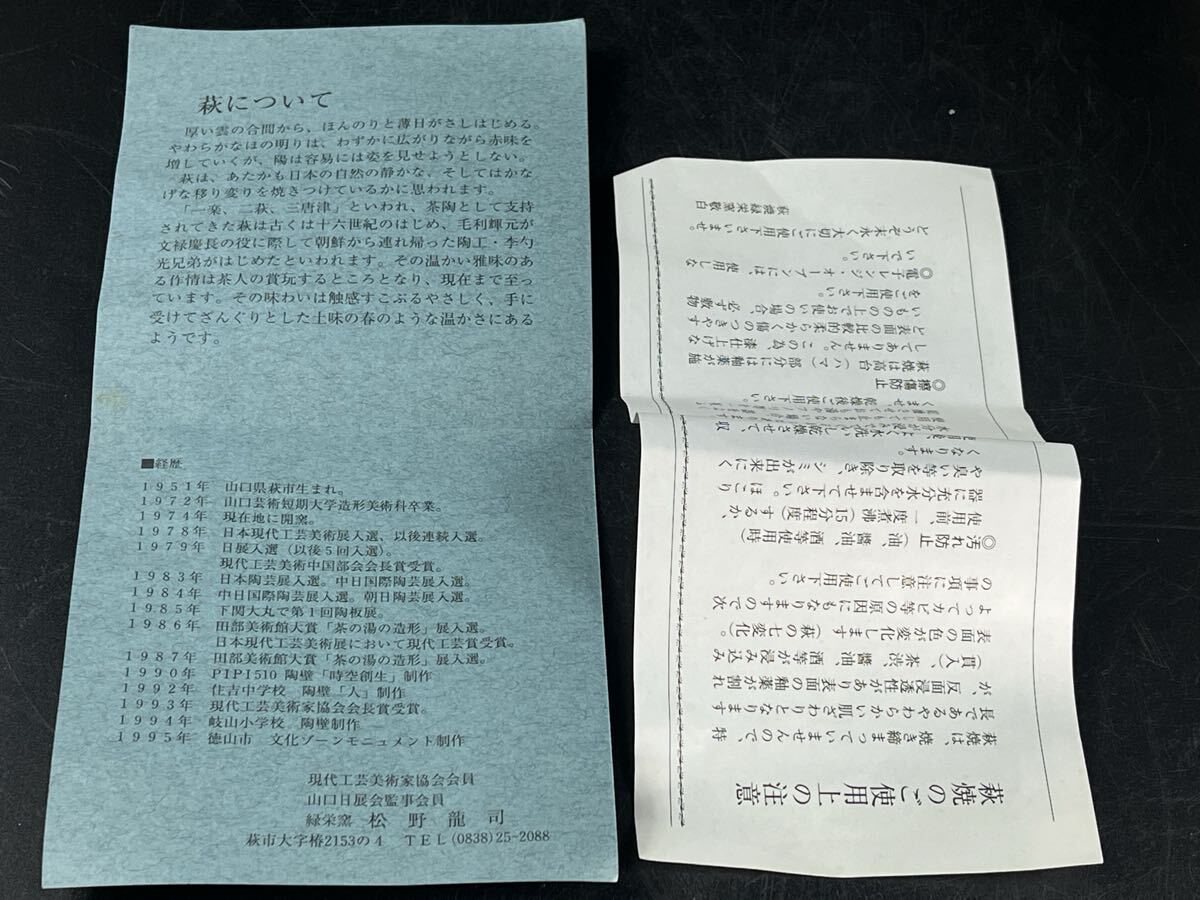 萩について
厚い雲の合間から、ほんのりと薄日がさしはじめる。
やわらかなほの明りは、わずかに広がりながら赤味を
増していくが、陽は容易には姿を見せようとしない。
萩は、あたかも日本の自然の静かな、そしてはかな
げな移り変りを焼きつけているかに思われます。
「一楽、二萩、三唐津」といわれ、茶陶として支持
されてきた萩は古くは十六世紀のはじめ、毛利輝元が
文禄慶長の役に際して朝鮮から連れ帰った陶工・李勺
光兄弟がはじめたといわれます。その温かい雅味のあ
る作情は茶人の賞玩するところとなり、現在まで至っ
ています。その味わいは触感すこぶるやさしく、手に
受けてざんぐりとした土味の春のような温かさにある
ようです。
■経歴
1951年 山口県萩市生まれ。
1972年 山口芸術短期大学造形美術科卒業。
1974年 現在地に開窯。
1978年 日本現代工芸美術展入選、以後連続入選。
1979年 日展入選(以後5回入選)。
現代工芸美術中国部会会長賞受賞。
1983年 日本陶芸展入選。中日国際陶芸展入選。
1984年 中日国際陶芸展入選。朝日陶芸展入選。
1985年 下関大丸で第1回陶板展。
1986年 田部美術館大賞「茶の湯の造形」展入選。
日本現代工芸美術展において現代工芸賞受賞。
1987年 田部美術館大賞「茶の湯の造形」展入選。
1990年 PIPI510 陶壁「時空創生」制作
1992年 住吉中学校 陶壁「人」制作
1993年 現代工芸美術家協会会長賞受賞。
1994年 岐山小学校 陶壁制作
1995年 徳山市 文化ゾーンモニュメント制作
現代工芸美術家協会会員
山口日展会監事会員
緑栄窯 松野龍司
萩市大字椿2153の4 TEL(0838)25-2088
萩焼のご使用上の注意
萩焼は、焼き締まっていませんので、特
長であるやわらかい肌ざわりとなります
が、反面浸透性があり表面の釉薬が割れ
(貫入)、茶渋、醬油、酒等が浸み込み
表面の色が変化します(萩の七変化)。
よってカビ等の原因にもなりますので次
の事項に注意してご使用下さい。
◎汚れ防止(油、醬油、酒等使用時)
使用前、一度煮沸(15分程度)するか、
器に充分水を含ませて下さい。ほこり
や臭い等を取り除き、シミが出来にく
くなります。
よく水洗いし乾燥させて、収
くませ、乾燥後ご使用下さい。
◎擦傷防止
萩焼は高台(ハマ)部分には釉薬が施
してありません。この為、漆仕上げな
ど表面の比較的柔らかく傷のつきやす
いものの上でお使いの場合、必ず敷物
をご使用下さい。
◎電子レンジ・オーブンには、使用しな
いで下さい。
どうぞ末永く大切にご使用下さいませ。
萩焼緑栄窯敬白